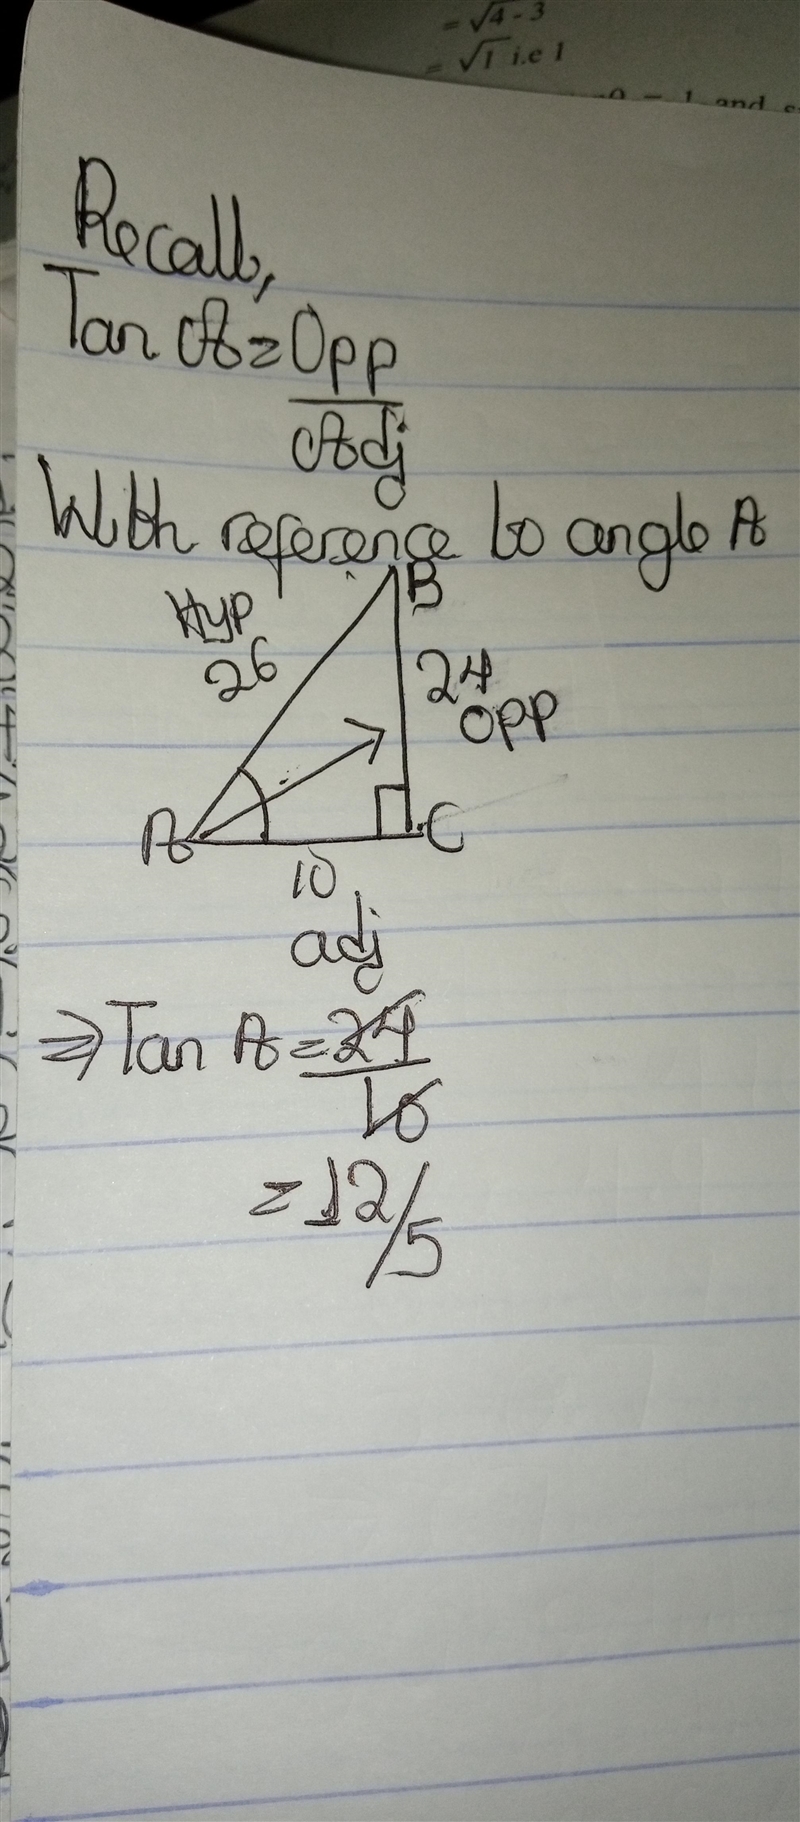 = √4 - 3
= √1 i.e 1
= 1 and
Recall,
Tan A = Opp
Adj
With reference to angle A
B
Hyp
26
24
OPP
A
C
10
adj
⇒ Tan A = 24
10
= 12/5